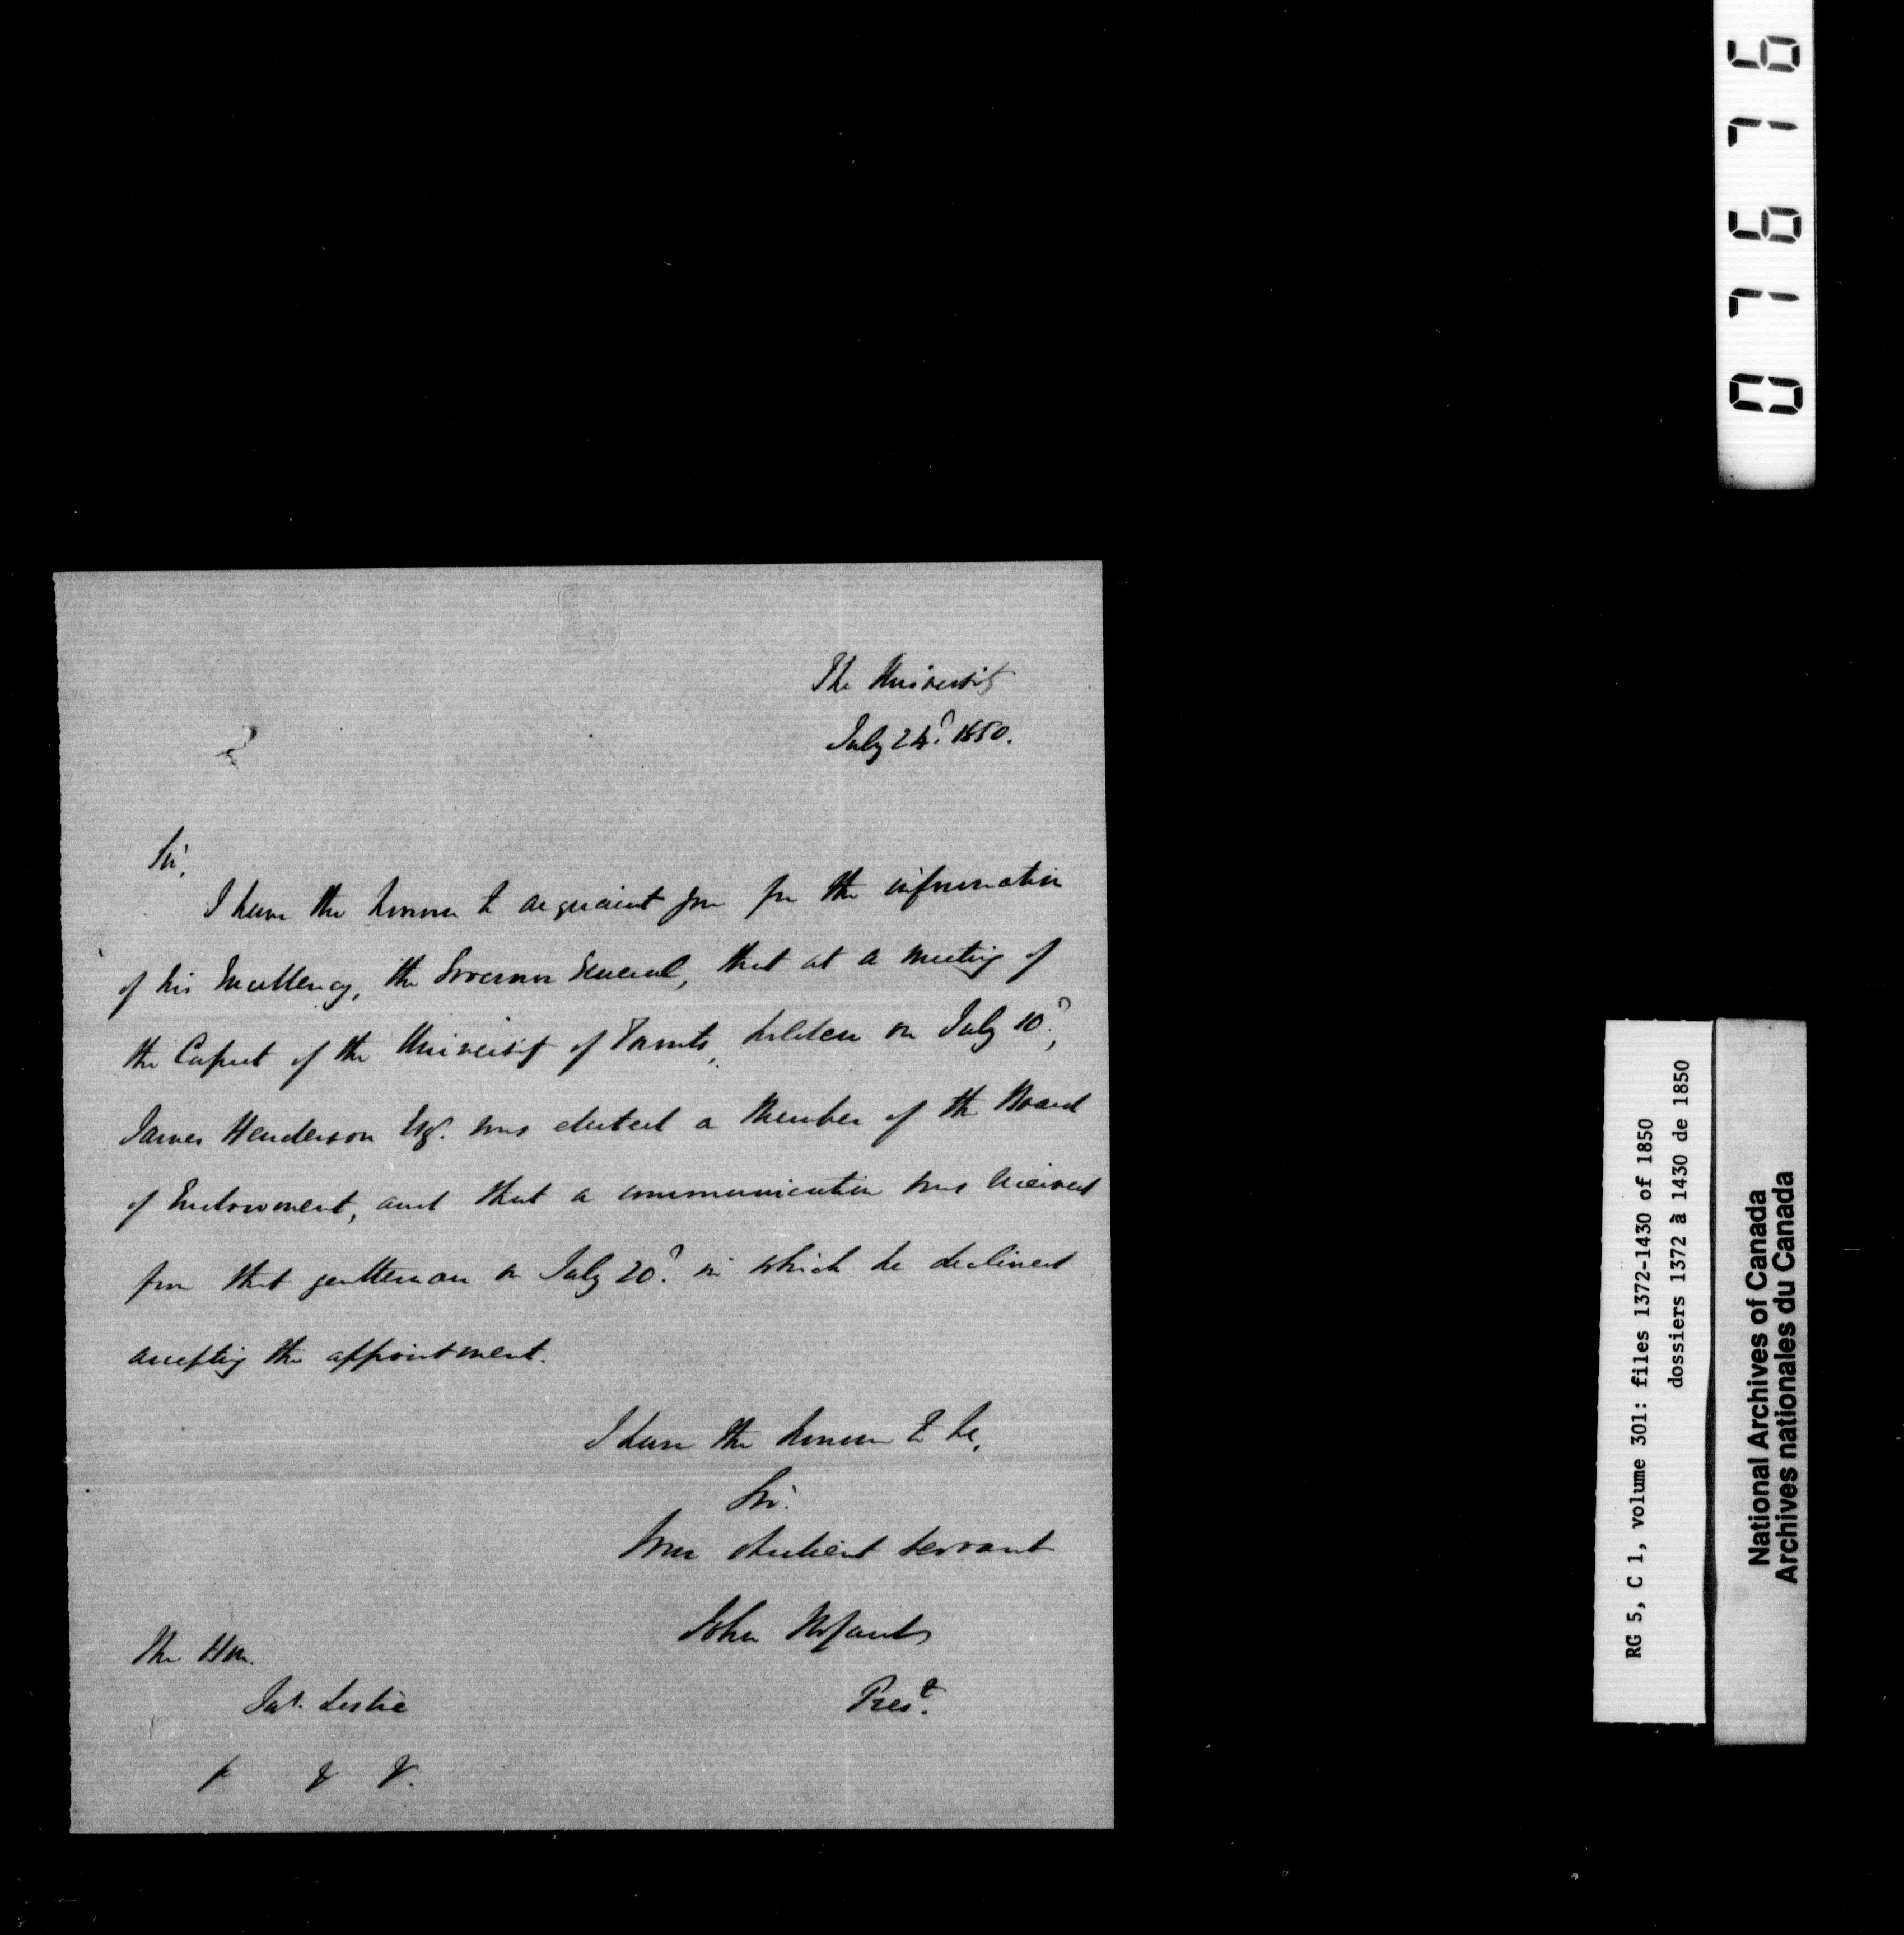 The University
July 24? 1850.
Sir,
I have the honour to acquaint you for the information
of his Excellency, the Governor General, that at a meeting of
the Caput of the University of Toronto, holden on July 10?,
James Henderson Esq. was elected a Member of the Board
of Endowment, and that a communication was received
from that gentleman on July 20? in which he declined
accepting the appointment.
I have the honour to be,
Sir.
Your obedient servant
John McCaul
Prest.
The Hon.
Jas. Leslie
& & &.
07676
RG 5, C 1, volume 301: files 1372-1430 of 1850
dossiers 1372 à 1430 de 1850
National Archives of Canada
Archives nationales du Canada